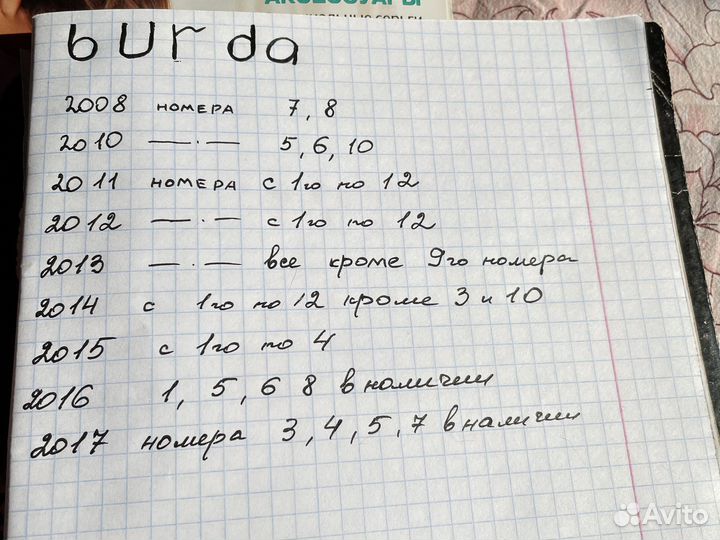 АКСЕССУАРЫ
burda
2008 номера 7, 8
2010 —·— 5, 6, 10
2011 номера с 1го по 12
2012 —·— с 1го по 12
2013 —·— все кроме 9го номера
2014 с 1го по 12 кроме 3 и 10
2015 с 1го по 4
2016 1, 5, 6 8 в наличии
2017 номера 3, 4, 5, 7 в наличии
Avito